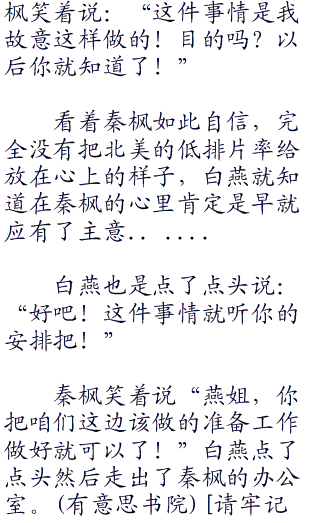 枫笑着说：“这件事情是我
故意这样做的！目的吗？以
后你就知道了！”
看着秦枫如此自信，完
全没有把北美的低排片率给
放在心上的样子，白燕就知
道在秦枫的心里肯定是早就
应有了主意.. ....
白燕也是点了点头说：
“好吧！这件事情就听你的
安排把！”
秦枫笑着说“燕姐，你
把咱们这边该做的准备工作
做好就可以了！”白燕点了
点头然后走出了秦枫的办公
室。(有意思书院) [请牢记